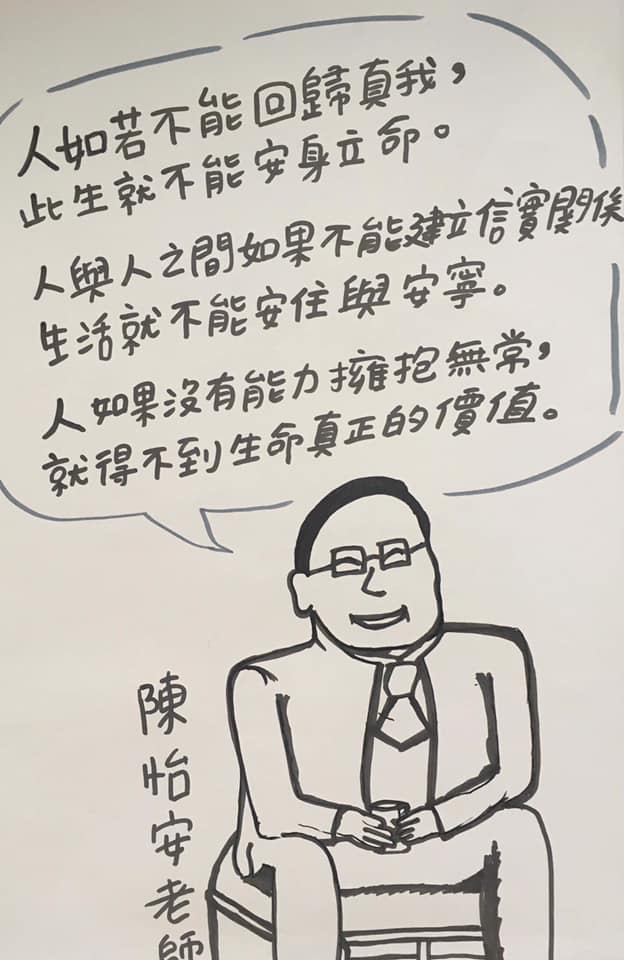 人如若不能回歸真我，
此生就不能安身立命。
人與人之間如果不能建立信實關係
生活就不能安住與安寧。
人如果沒有能力擁抱無常，
就得不到生命真正的價值。
陳怡安老師